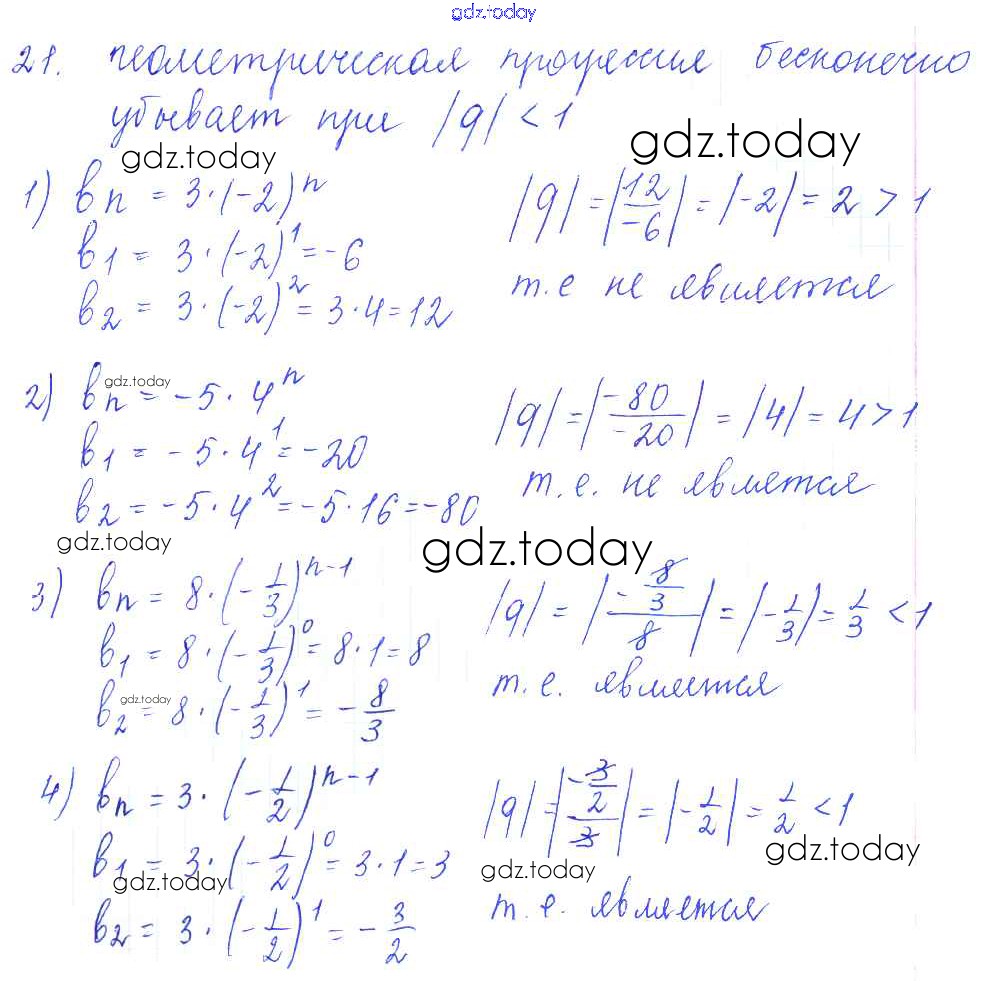 gdz.today
21. геометрическая прогрессия бесконечно
убывает при |q| < 1
gdz.today
gdz.today
1) bn = 3·(-2)^n
b1 = 3·(-2)^1 = -6
b2 = 3·(-2)^2 = 3·4 = 12
|q| = |12/-6| = |-2| = 2 > 1
т.е не является
2) bn = -5·4^n
gdz.today
b1 = -5·4^1 = -20
b2 = -5·4^2 = -5·16 = -80
|q| = |-80/-20| = |4| = 4 > 1
т.е. не является
gdz.today
gdz.today
3) bn = 8·(-1/3)^n-1
b1 = 8·(-1/3)^0 = 8·1 = 8
b2 = 8·(-1/3)^1 = -8/3
gdz.today
|q| = |-8/3/8| = |-1/3| = 1/3 < 1
т.е. является
4) bn = 3·(-1/2)^n-1
b1 = 3·(-1/2)^0 = 3·1 = 3
gdz.today
b2 = 3·(-1/2)^1 = -3/2
|q| = |-3/2/3| = |-1/2| = 1/2 < 1
gdz.today
gdz.today
т.е. является